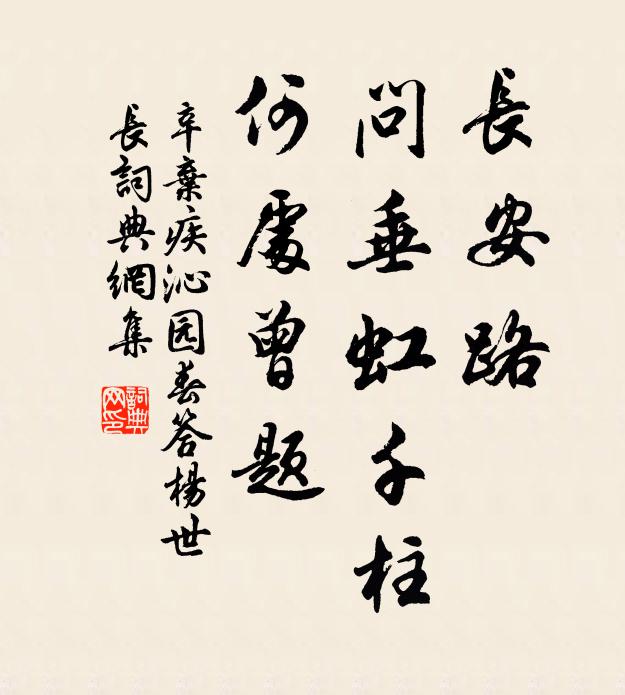 長安路
問垂虹千柱
何處曾题
辛棄疾沁园春答楊世
長詞典網集
詞典网印